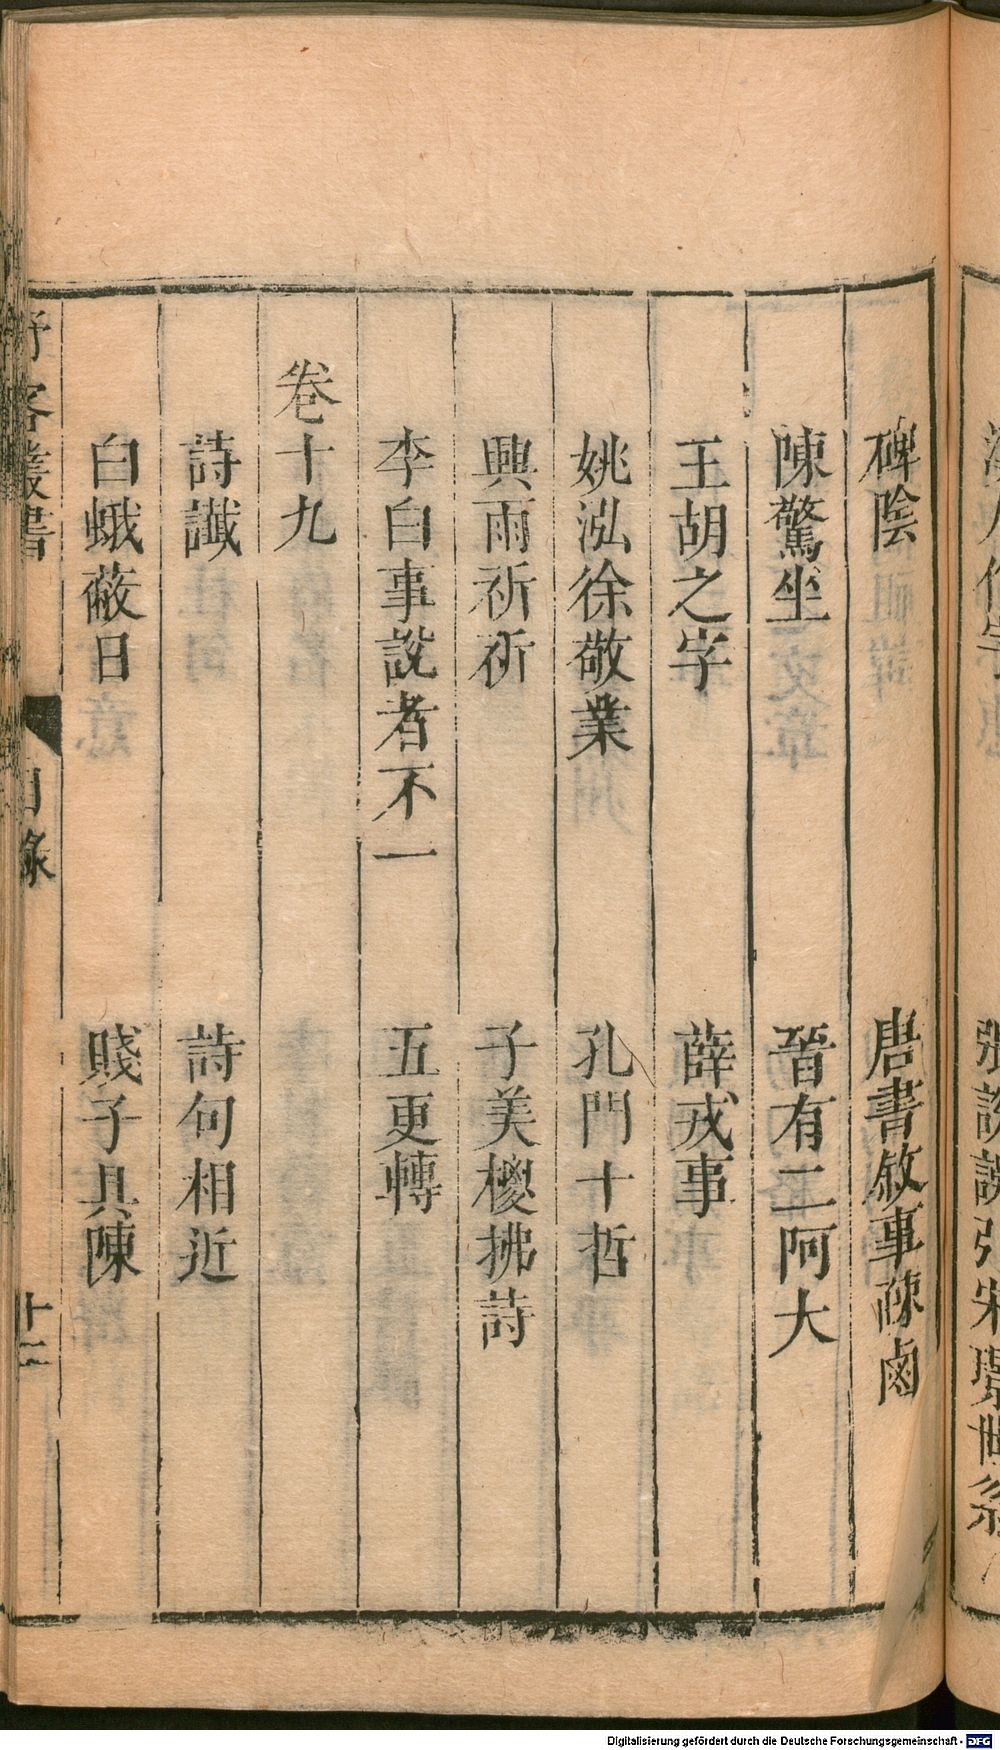 碑陰　唐書敘事疎鹵
陳驚坐　晉有二阿大
王胡之字　薛戎事
姚泓徐敬業　孔門十哲
興雨祈祈　子美椶拂詩
李白事說者不一　五更轉
卷十九
詩讖　詩句相近
白蛾蔽日　賤子具陳
客叢書　目錄　十二
Digitalisierung gefördert durch die Deutsche Forschungsgemeinschaft - DFG